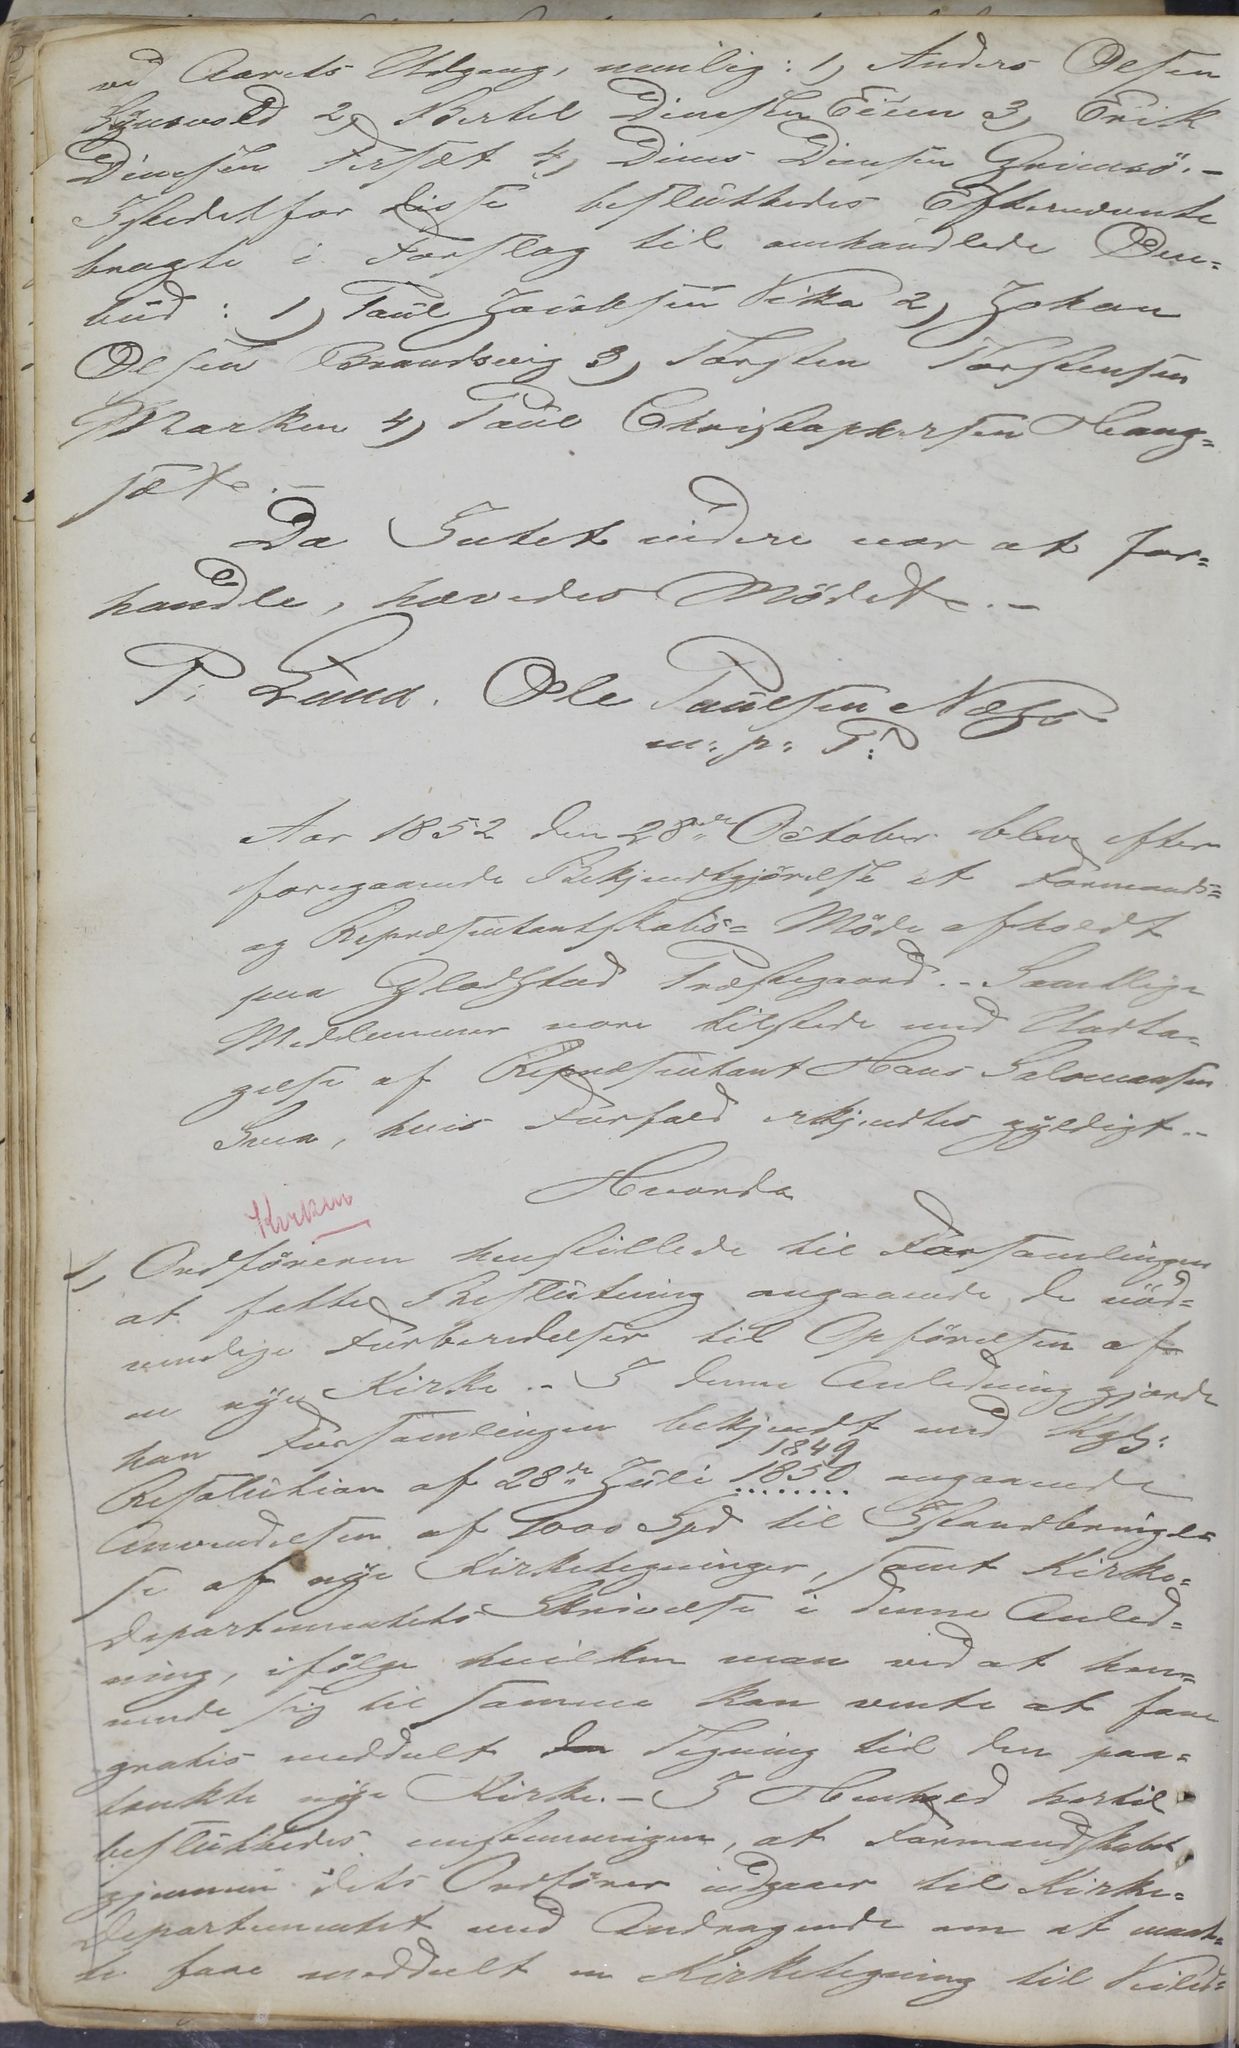 ved Aarets Udgang, nemlig: 1, Anders Olsen
2, Bertel Dinesen Eien 3, Erik
Dinesen Fersæt 4, Dines Dinesen Grimsö.-
Istedetfor disse besluttedes Efternævnte
bragte i Forslag til omhandlede Om-
bud: 1) Paul Jacobsen Vika 2) Johan
Olsen Brandsvig 3) Torsten Torstensen
Marken 4) Paul Christophersen Hang-
sæt.-
Da Intet videre var at for-
handle, hævedes Mödet.-
P: Lund. Ole Paulsen Næss
m: p: P:
Aar 1852 den 28de October blev efter
foregaaende Bekjendtgjörelse et Formands=
og Repræsentantskabs= Möde afholdt
paa Gladstad Præstegaard.- Samtlige
Medlemmer vare tilstede med Undta-
gelse af Repræsentant Hans Salomonsen
, hvis Forfald erkjendtes gyldigt.-
Hvorda
Kirken
1, Ordföreren henstillede til Forsamlingen
at fatte Beslutning angaaende de nöd-
vendige Forberedelser til Opförelsen af
en nye Kirke.- I denne Anledning gjorde
han Forsamlingen bekjendt med Kgl:
1849
Resolution af 28de Juli 1850 angaaende
Anvendelsen af 1000 Spd til Istandbringel-
se af nye Kirketegninger, samt Kirke-
departementets Skrivelse i denne Anled-
ning, ifölge hvilken man ved at hen-
vende sig til samme kan vente at faae
gratis meddelt den Tegning til den paa-
tænkte nye Kirke.- I Henhold hertil
besluttedes eenstemmigen, at Formandskabet
gjennem dets Ordförer indgaaer til Kirke-
departementet med Andragende om at maat-
te faae meddeelt en Kirketegning til Veiled-